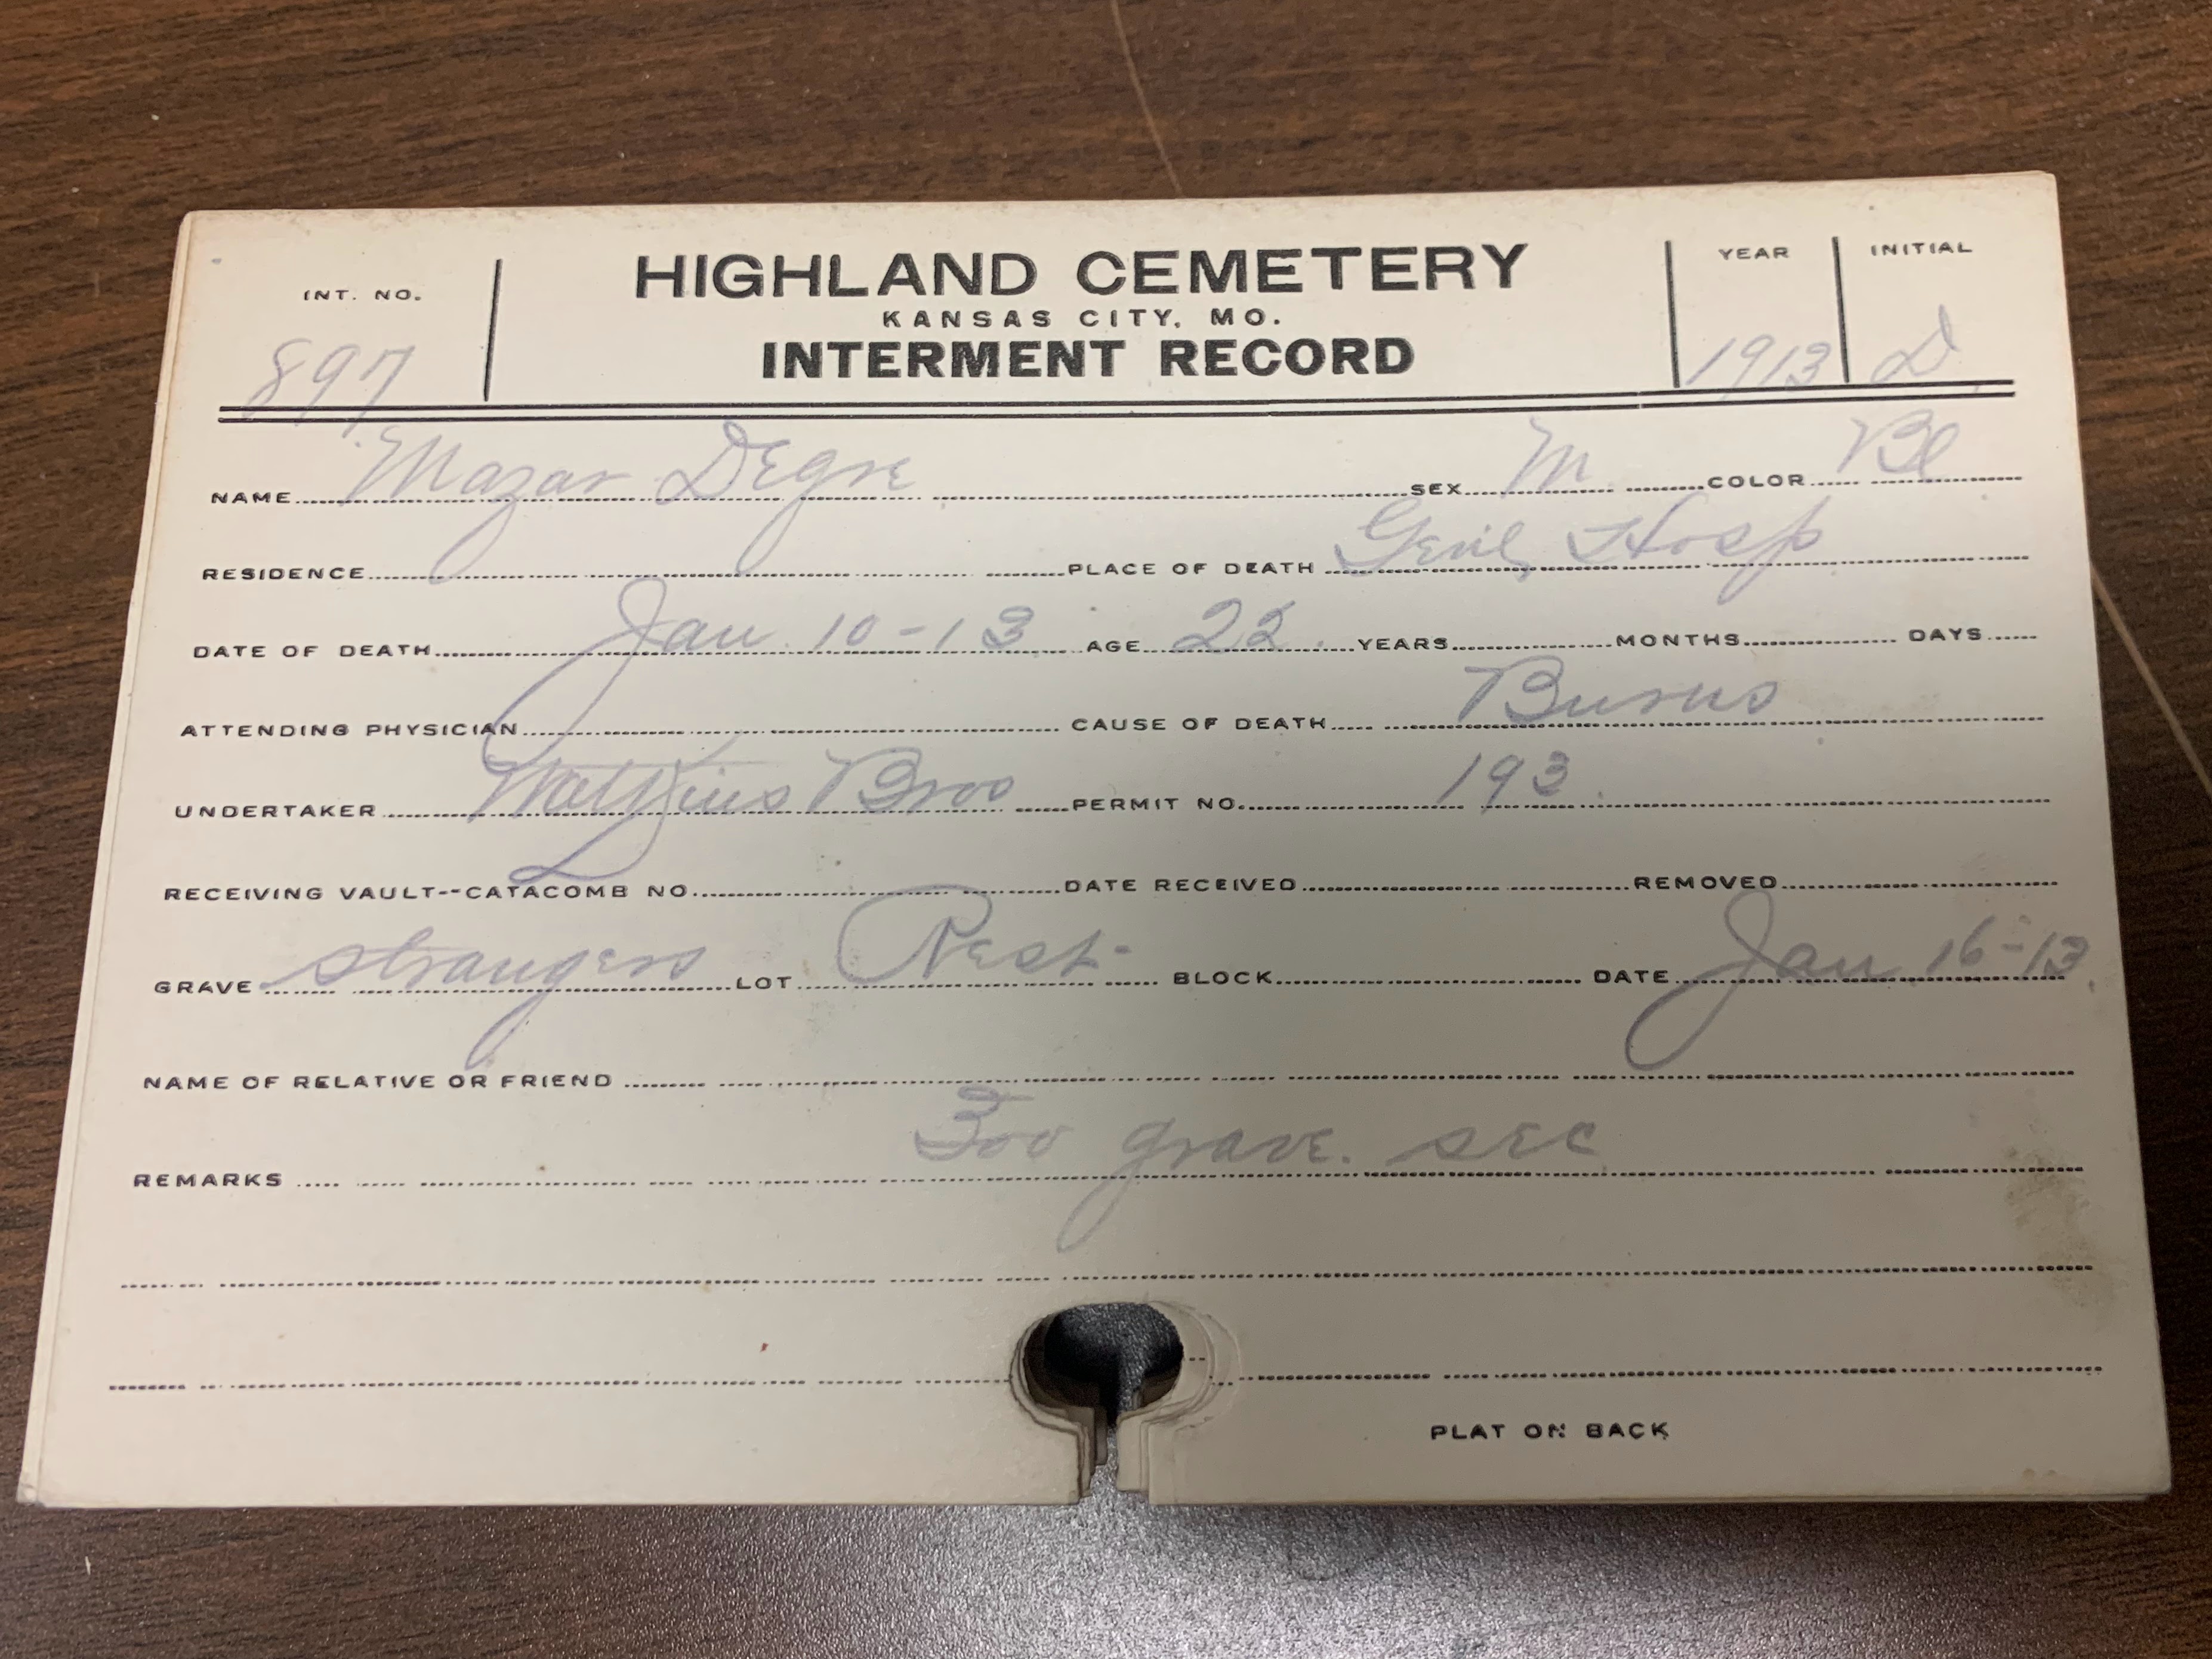 INT. NO.
HIGHLAND CEMETERY
YEAR
INITIAL
KANSAS CITY, MO.
897
INTERMENT RECORD
1913
D.
NAME Mazar Degre SEX M COLOR Bl
RESIDENCE PLACE OF DEATH Genl, Hosp
DATE OF DEATH Jan 10-13 AGE 22 YEARS MONTHS DAYS
ATTENDING PHYSICIAN CAUSE OF DEATH Burns
UNDERTAKER Watkins Bros PERMIT NO. 193.
RECEIVING VAULT--CATACOMB NO. DATE RECEIVED REMOVED
GRAVE strangers LOT Rest BLOCK DATE Jan 16-13
NAME OF RELATIVE OR FRIEND
REMARKS 300 grave. sec
PLAT ON BACK